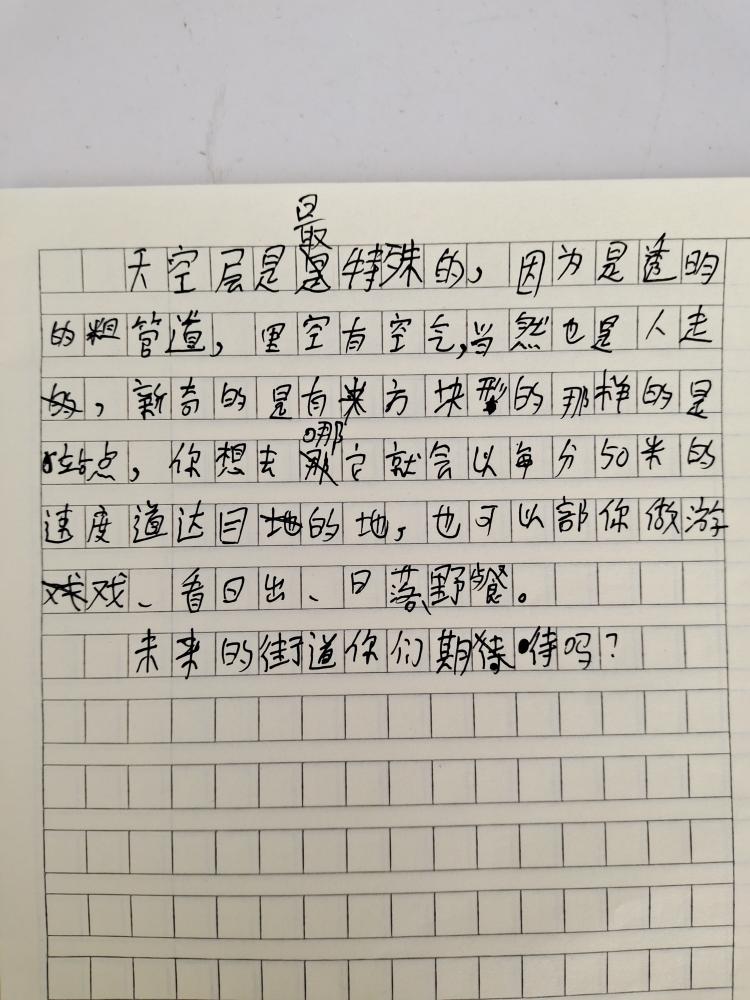 天空层是最特殊的，因为是透明
的粗管道，里空有空气，当然也是人走
的，新奇的是有方块形的那样的是
站点，你想去哪它就会以每分50米的
速度道达目的地，也可以部你做游
戏、看日出、日落野餐。
未来的街道你们期待吗？